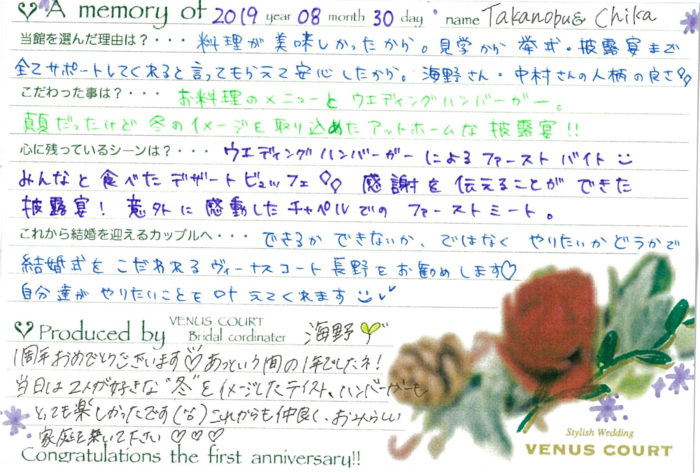 A memory of 2019 year 08 month 30 day name Takanobu & Chika
当館を選んだ理由は？・・・ 料理が美味しかったから。見学から挙式・披露宴まで
全てサポートしてくれると言ってもらえて安心したから。海野さん・中村さんの人柄の良さ
こだわった事は？・・・ お料理のメニューとウエディングハンバーガー。
真夏だったけど冬のイメージを取り込めたアットホームな披露宴!!
心に残っているシーンは？・・・ ウエディングハンバーガーによるファーストバイト
みんなと食べたデザートビュッフェ 感謝を伝えることができた
披露宴! 意外に感動したチャペルでのファーストミート。
これから結婚を迎えるカップルへ・・・ できるかできないか、ではなくやりたいかどうかで
結婚式をこだわれるヴィーナスコート長野をお勧めします♡
自分達がやりたいことを叶えてくれます
Produced by VENUS COURT Bridal cordinater 海野
1周年おめでとうございます♡あっという間の1年でしたネ!
当日は2人が好きな"冬"をイメージしたテイスト、ハンバーガーも
とっても楽しかったです これからも仲良く、お二人らしい
家庭を築いて下さい♡♡♡
Congratulations the first anniversary!!
Stylish Wedding
VENUS COURT